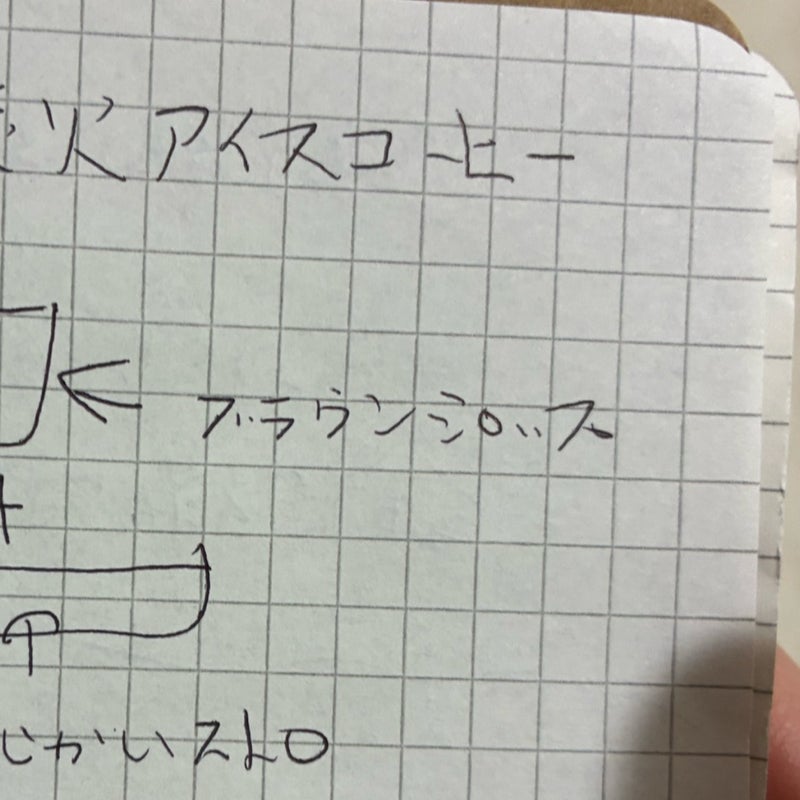 火アイスコーヒー
ブラウンシロップ
じかいストロ